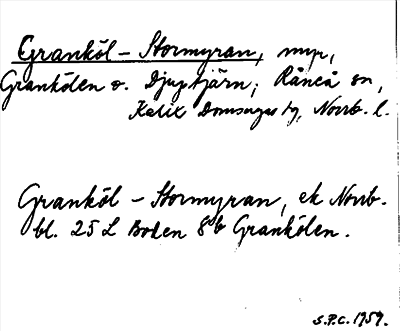 Granköl - Stormyran, myr,
Grankölen o. Djuptjärn, Råneå sn,
Kalix Domsagas tg, Norrb. l.
Granköl - Stormyran, ek Norrb.
bl. 25 L Boden 8b Grankölen.
S.P.C. 1959.